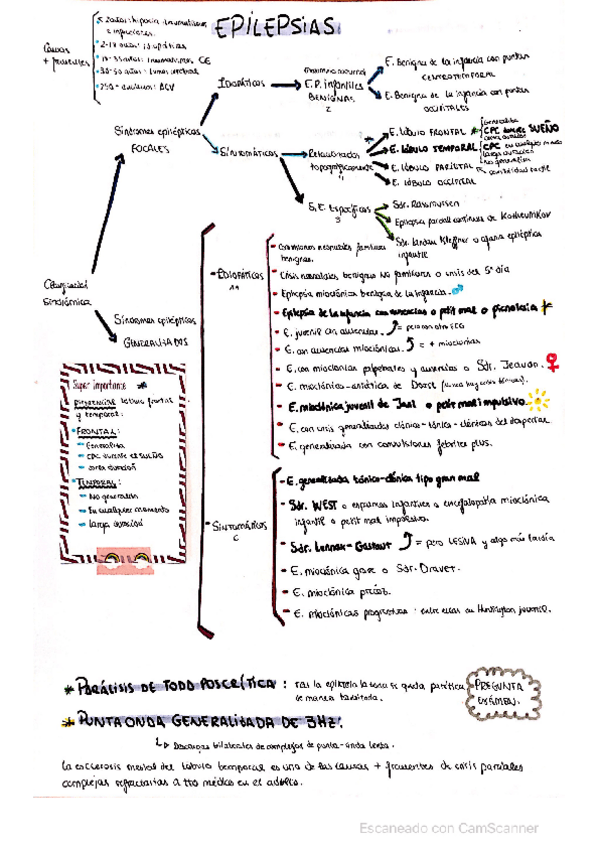 EPILEPSIAS
Causas
+ frecuentes
2-18 años: idiopáticas
Síndromes epilépticos
FOCALES
IDIOPÁTICOS
E.P. infantiles
BENIGNAS
2
E. Benigna de la infancia con puntas
CENTROTEMPORAL
E. Benigna de la infancia con puntas
OCCIPITALES
SINTOMÁTICOS
Relacionados
topográficamente
E. LÓBULO FRONTAL
CPC durante SUEÑO
E. LÓBULO TEMPORAL
CPC en cualquier momento
larga duración
No generaliza
E. LÓBULO PARIETAL
E. LÓBULO OCCIPITAL
S.E. Específicos
3
Sdr. Rasmussen
Epilepsia parcial continua de
Sdr. Landau Kleffner o afasia epiléptica
infantil
Categoría
Sindrómica
Síndromes epilépticos
GENERALIZADOS
IDIOPÁTICOS
Convulsiones neonatales familiares
benignas.
Crisis neonatales benignas No familiares o crisis del 5º día
Epilepsia mioclónica benigna de la infancia. ♂
Epilepsia de la infancia con ausencias o petit mal o picnolepsia
E. juvenil con ausencias.
E. con ausencias mioclónicas. = + mioclonias
E. con mioclonias palpebrales y ausencias o Sdr. Jeavon. ♀
E. mioclónico-astática de Doose
E. mioclónica juvenil de Janz o petit mal impulsivo.
E. con crisis generalizadas clónico-tónico-clónicas del despertar.
E. generalizada con convulsiones febriles plus.
Super importante *
Diferenciar lóbulo frontal
y temporal:
- FRONTAL:
- Generaliza
- CPC durante el SUEÑO
- corta duración
- TEMPORAL:
- No generaliza
- En cualquier momento
- larga duración
SINTOMÁTICOS
6
E. generalizada tónico-clónica tipo gran mal
Sdr. WEST o espasmos infantiles o encefalopatía mioclónica
infantil o petit mal impulsivo.
Sdr. Lennox-Gastaut = pero LESIVA y algo más tardía
E. mioclónica grave o Sdr. Dravet.
E. mioclónica precoz.
E. mioclónicas progresivas: entre ellas su Huntington juvenil.
* PARÁLISIS DE TODD POSCRÍTICA: tras la epilepsia la zona se queda parética
de manera transitoria.
PREGUNTA
EXÁMEN.
* PUNTA ONDA GENERALIZADA DE 3HZ:
↳ Descargas bilaterales de complejos de punta-onda lenta.
La esclerosis mesial del lóbulo temporal es una de las causas + frecuentes de crisis parciales
complejas refractarias a tto médico en el adulto.
Escaneado con CamScanner